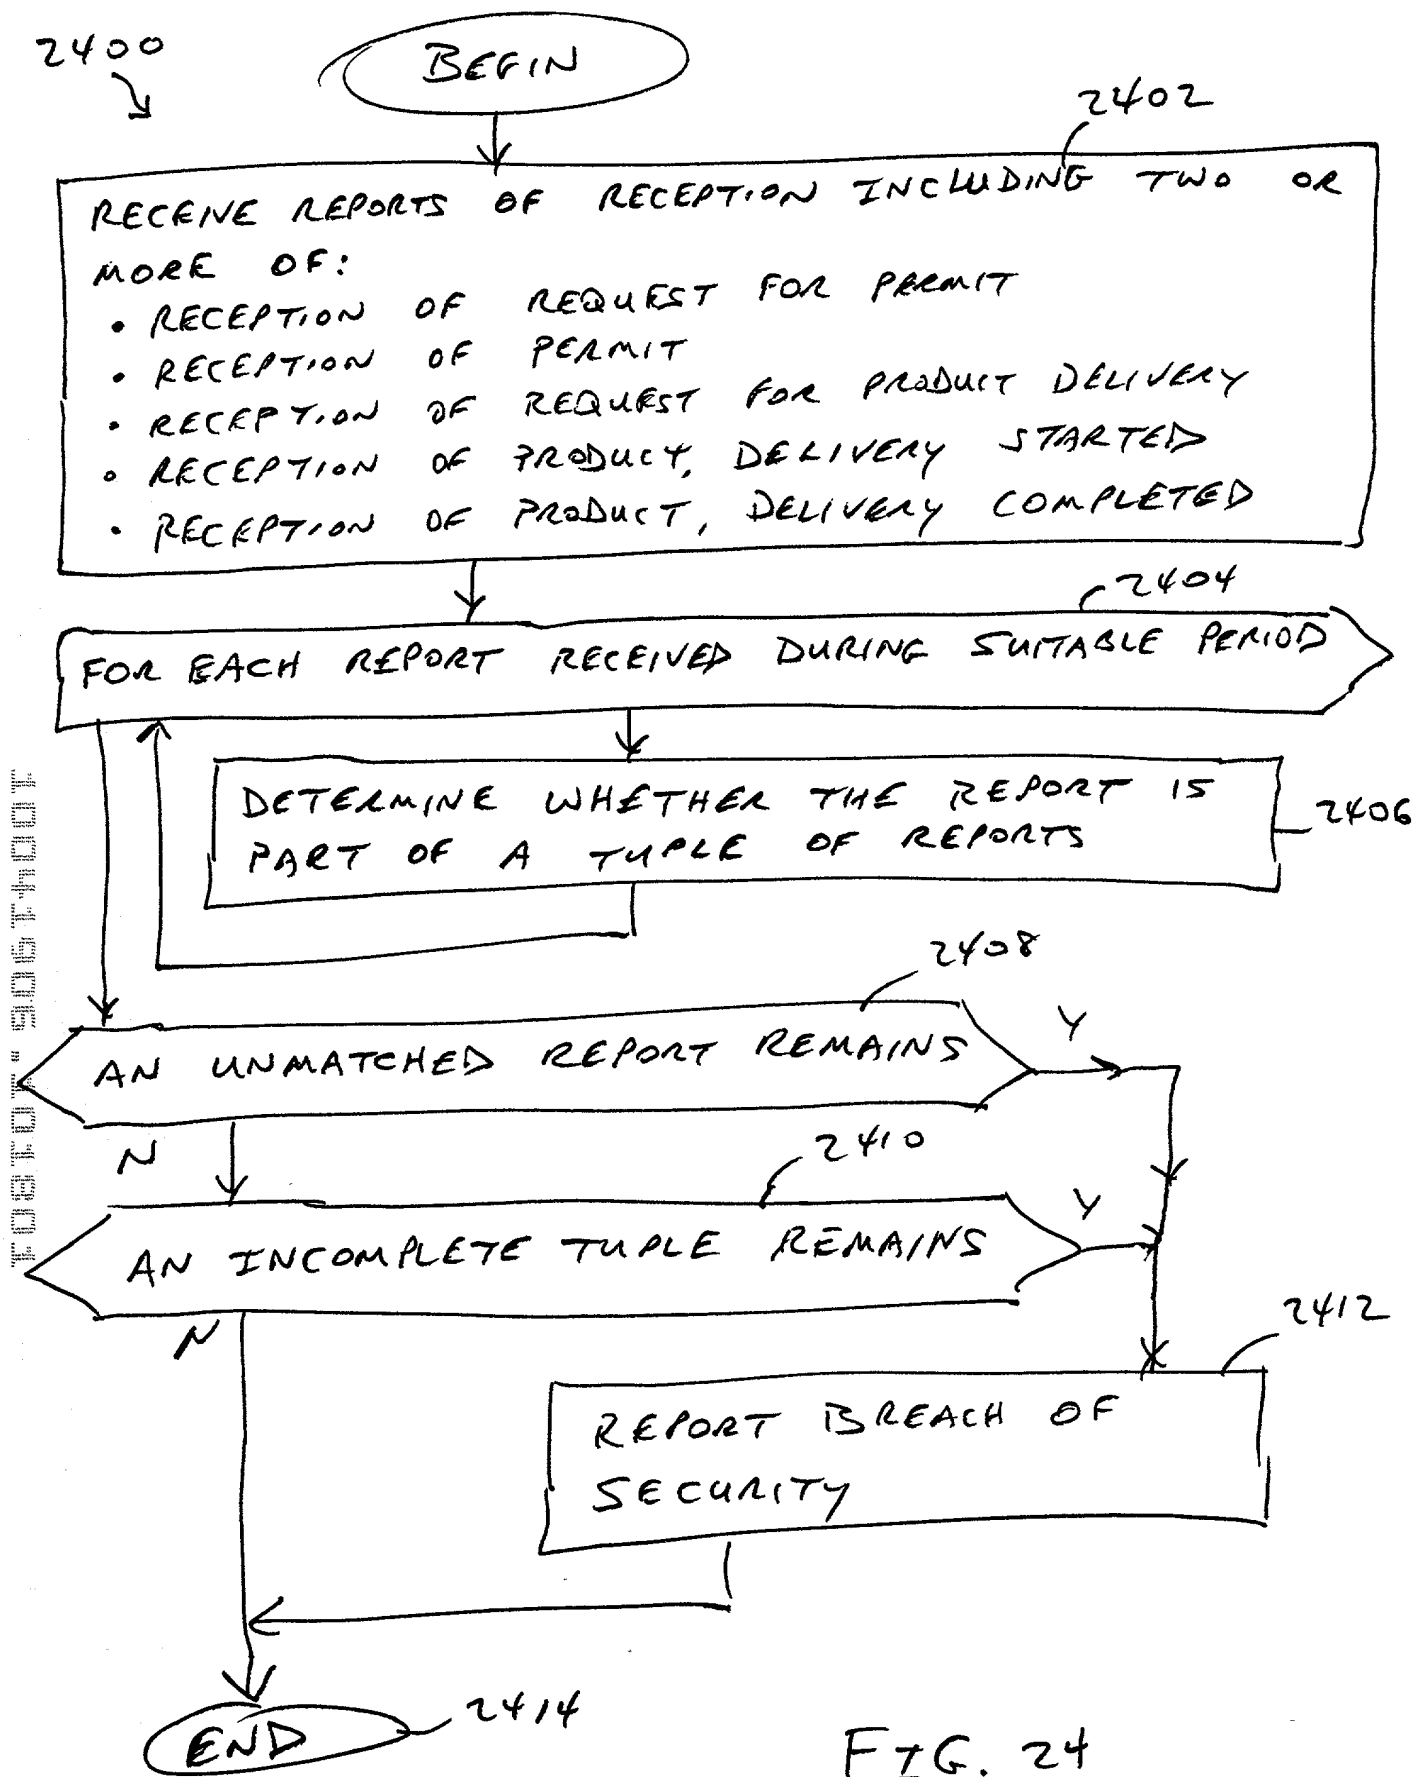 2400
BEGIN
2402
RECEIVE REPORTS OF RECEPTION INCLUDING TWO OR
MORE OF:
• RECEPTION OF REQUEST FOR PERMIT
• RECEPTION OF PERMIT
• RECEPTION OF REQUEST FOR PRODUCT DELIVERY
• RECEPTION OF PRODUCT, DELIVERY STARTED
• RECEPTION OF PRODUCT, DELIVERY COMPLETED
2404
FOR EACH REPORT RECEIVED DURING SUITABLE PERIOD
DETERMINE WHETHER THE REPORT IS
PART OF A TUPLE OF REPORTS
2406
2408
AN UNMATCHED REPORT REMAINS
Y
N
2410
AN INCOMPLETE TUPLE REMAINS
Y
N
2412
REPORT BREACH OF
SECURITY
END
2414
FIG. 24